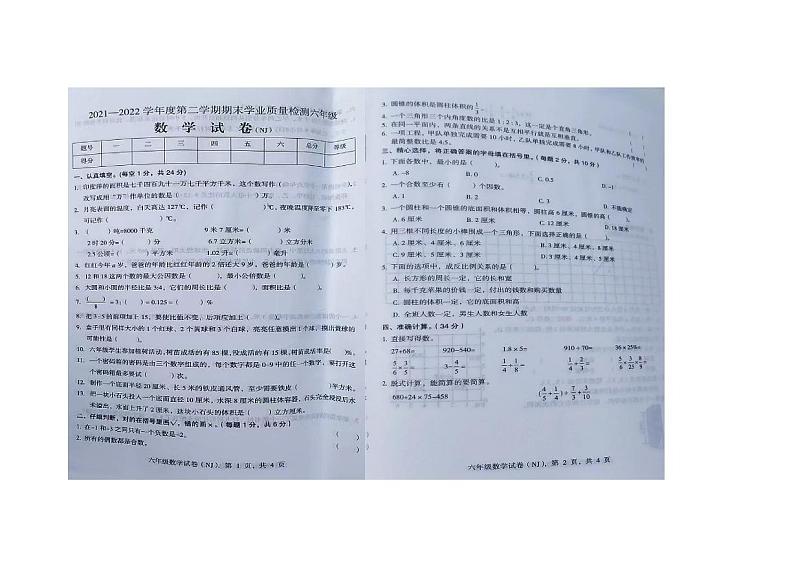 2021—2022 学年度第二学期期末学业质量检测六年级
数 学 试 卷 (NJ)
题号 一 二 三 四 五 六 总分 等级
得分
一、认真填空。(每空 1 分，共 24 分)
1. 印度洋的面积是七千四百九十一万七千平方千米，这个数写作( )，
改写成用“万”作单位的数是( )万。
2. 月亮表面的温度，白天高达 127℃，记作( )℃，夜晚温度降至零下 183℃，
可记作( )℃。
3. ( )吨=8000 千克 9 米 7 厘米=( )米
2 时 20 分=( )分 6.7 立方米=( )立方分米
2.3 公顷=( )平方米 1.02 升=( )毫升
4. 红红今年 a 岁，爸爸的年龄比红红年龄的 2 倍还大 9 岁，爸爸的年龄是( )岁。
5. 12 和 18 这两个数的最大公因数是( )，最小公倍数是( )。
6. 大圆和小圆的半径比是 3∶4，它们的周长比是( )，面积比是( )。
7. ( )/8 =3∶( )=0.125=( )%
8. 把 3∶5 的前项加上 15，要使比值不变，后项应加上( )。
9. 盒子里有同样大小的 1 个红球、2 个黄球和 3 个白球，亮亮任意摸出 1 个球，摸出黄球的
可能性是( )。
10. 六年级学生参加植树活动，树苗成活的有 85 棵，没成活的有 15 棵，树苗成活率是( )%。
11. 一个密码箱的密码是由三个数字组成的，每个数字都是 0~9 中的任一个数字，要打开这
个密码箱最多要试( )次。
12. 制作一个底面半径 20 厘米，长 5 米的铁皮通风管，至少需要铁皮( )平方米。
13. 把一块小石头投入一个底面直径 10 厘米，水深 8 厘米的圆柱体容器，石头完全浸没后水
未溢出，水面上升了 2 厘米，这块小石头的体积是( )立方厘米。
二、仔细判断，对的在括号里画√，错的画×。(每题 1 分，共 6 分)
1. 在-1 和-3 之间只有一个负数是-2。 ( )
2. 所有的偶数都是合数。 ( )
六年级数学试卷 (NJ)，第 1 页，共 4 页
3. 圆锥的体积是圆柱体积的 1/3。
4. 一个三角形三个内角度数的比是 1∶2∶3，这一定是个直角三角形。 ( )
5. 在同一平面内，两条直线的关系不是互相平行就是互相垂直。
6. 一项工程，甲队单独完成需要 10 小时，乙队单独完成需要 8 小时，甲队和乙队工作效率的
最简整数比是 4∶5。 ( )
三、精心选择，将正确答案的字母填在括号里。(每题 2 分，共 10 分)
1. 下面各数中，最小的是( )。
A. -8 B. 0 C. 0.5 D. -1
2. 一个合数至少有( )个因数。
A. 1 B. 2 C. 3 D. 不能确定
3. 一个圆柱和一个圆锥的底面积和体积相等，圆柱高 6 厘米，圆锥的高( )。
A. 6 厘米 B. 2 厘米 C. 12 厘米 D. 18 厘米
4. 用三根不同长度的小棒围成一个三角形，下面选择正确的是( )。
A. 2 厘米、4 厘米、6 厘米 B. 3 厘米、4 厘米、8 厘米
C. 9 厘米、5 厘米、3 厘米 D. 4 厘米、5 厘米、6 厘米
5. 下面的选项中，成反比例关系的是( )。
A. 长方形的周长一定，它的长和宽
B. 每千克苹果的价钱一定，付出的钱数和购买数量
C. 圆柱的体积一定，它的底面积和高
D. 全班人数一定，男生人数和女生人数
四、准确计算。(34 分)
1. 直接写得数。
27+68= 920-540= 1.8×5= 910÷70= 36×25%=
2. 脱式计算，能简算的要简算。
680+24×75-458
六年级数学试卷 (NJ)，第 2 页，共 4 页